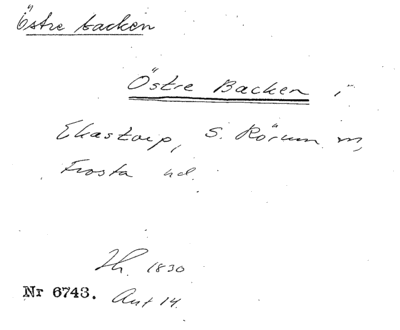 Östre backen
Östre Backen i
Ekastorp, S. Rörum sn,
Frosta hd.
Th. 1830
Nr 6743. Ant 14.